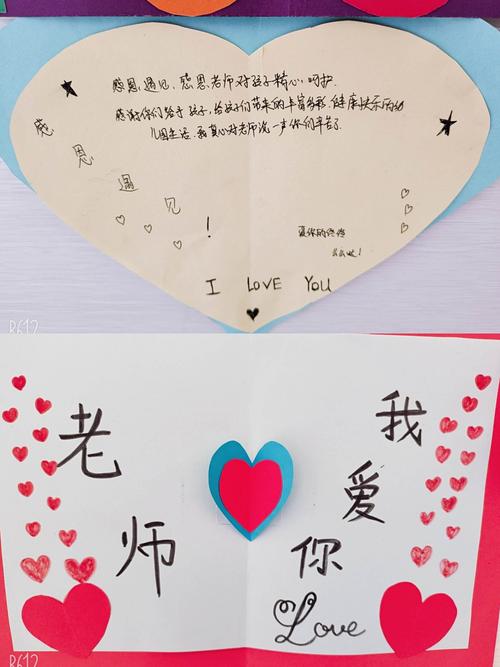 感恩、遇见、感恩老师对孩子精心呵护.
感谢你们给予孩子,给孩子们带来的丰富多彩,健康快乐的幼
儿园生活.我真心对老师说一声你们辛苦了
感恩遇见!
爱你的
I LOVE YOU
R612
老师
我爱你
Love
R612